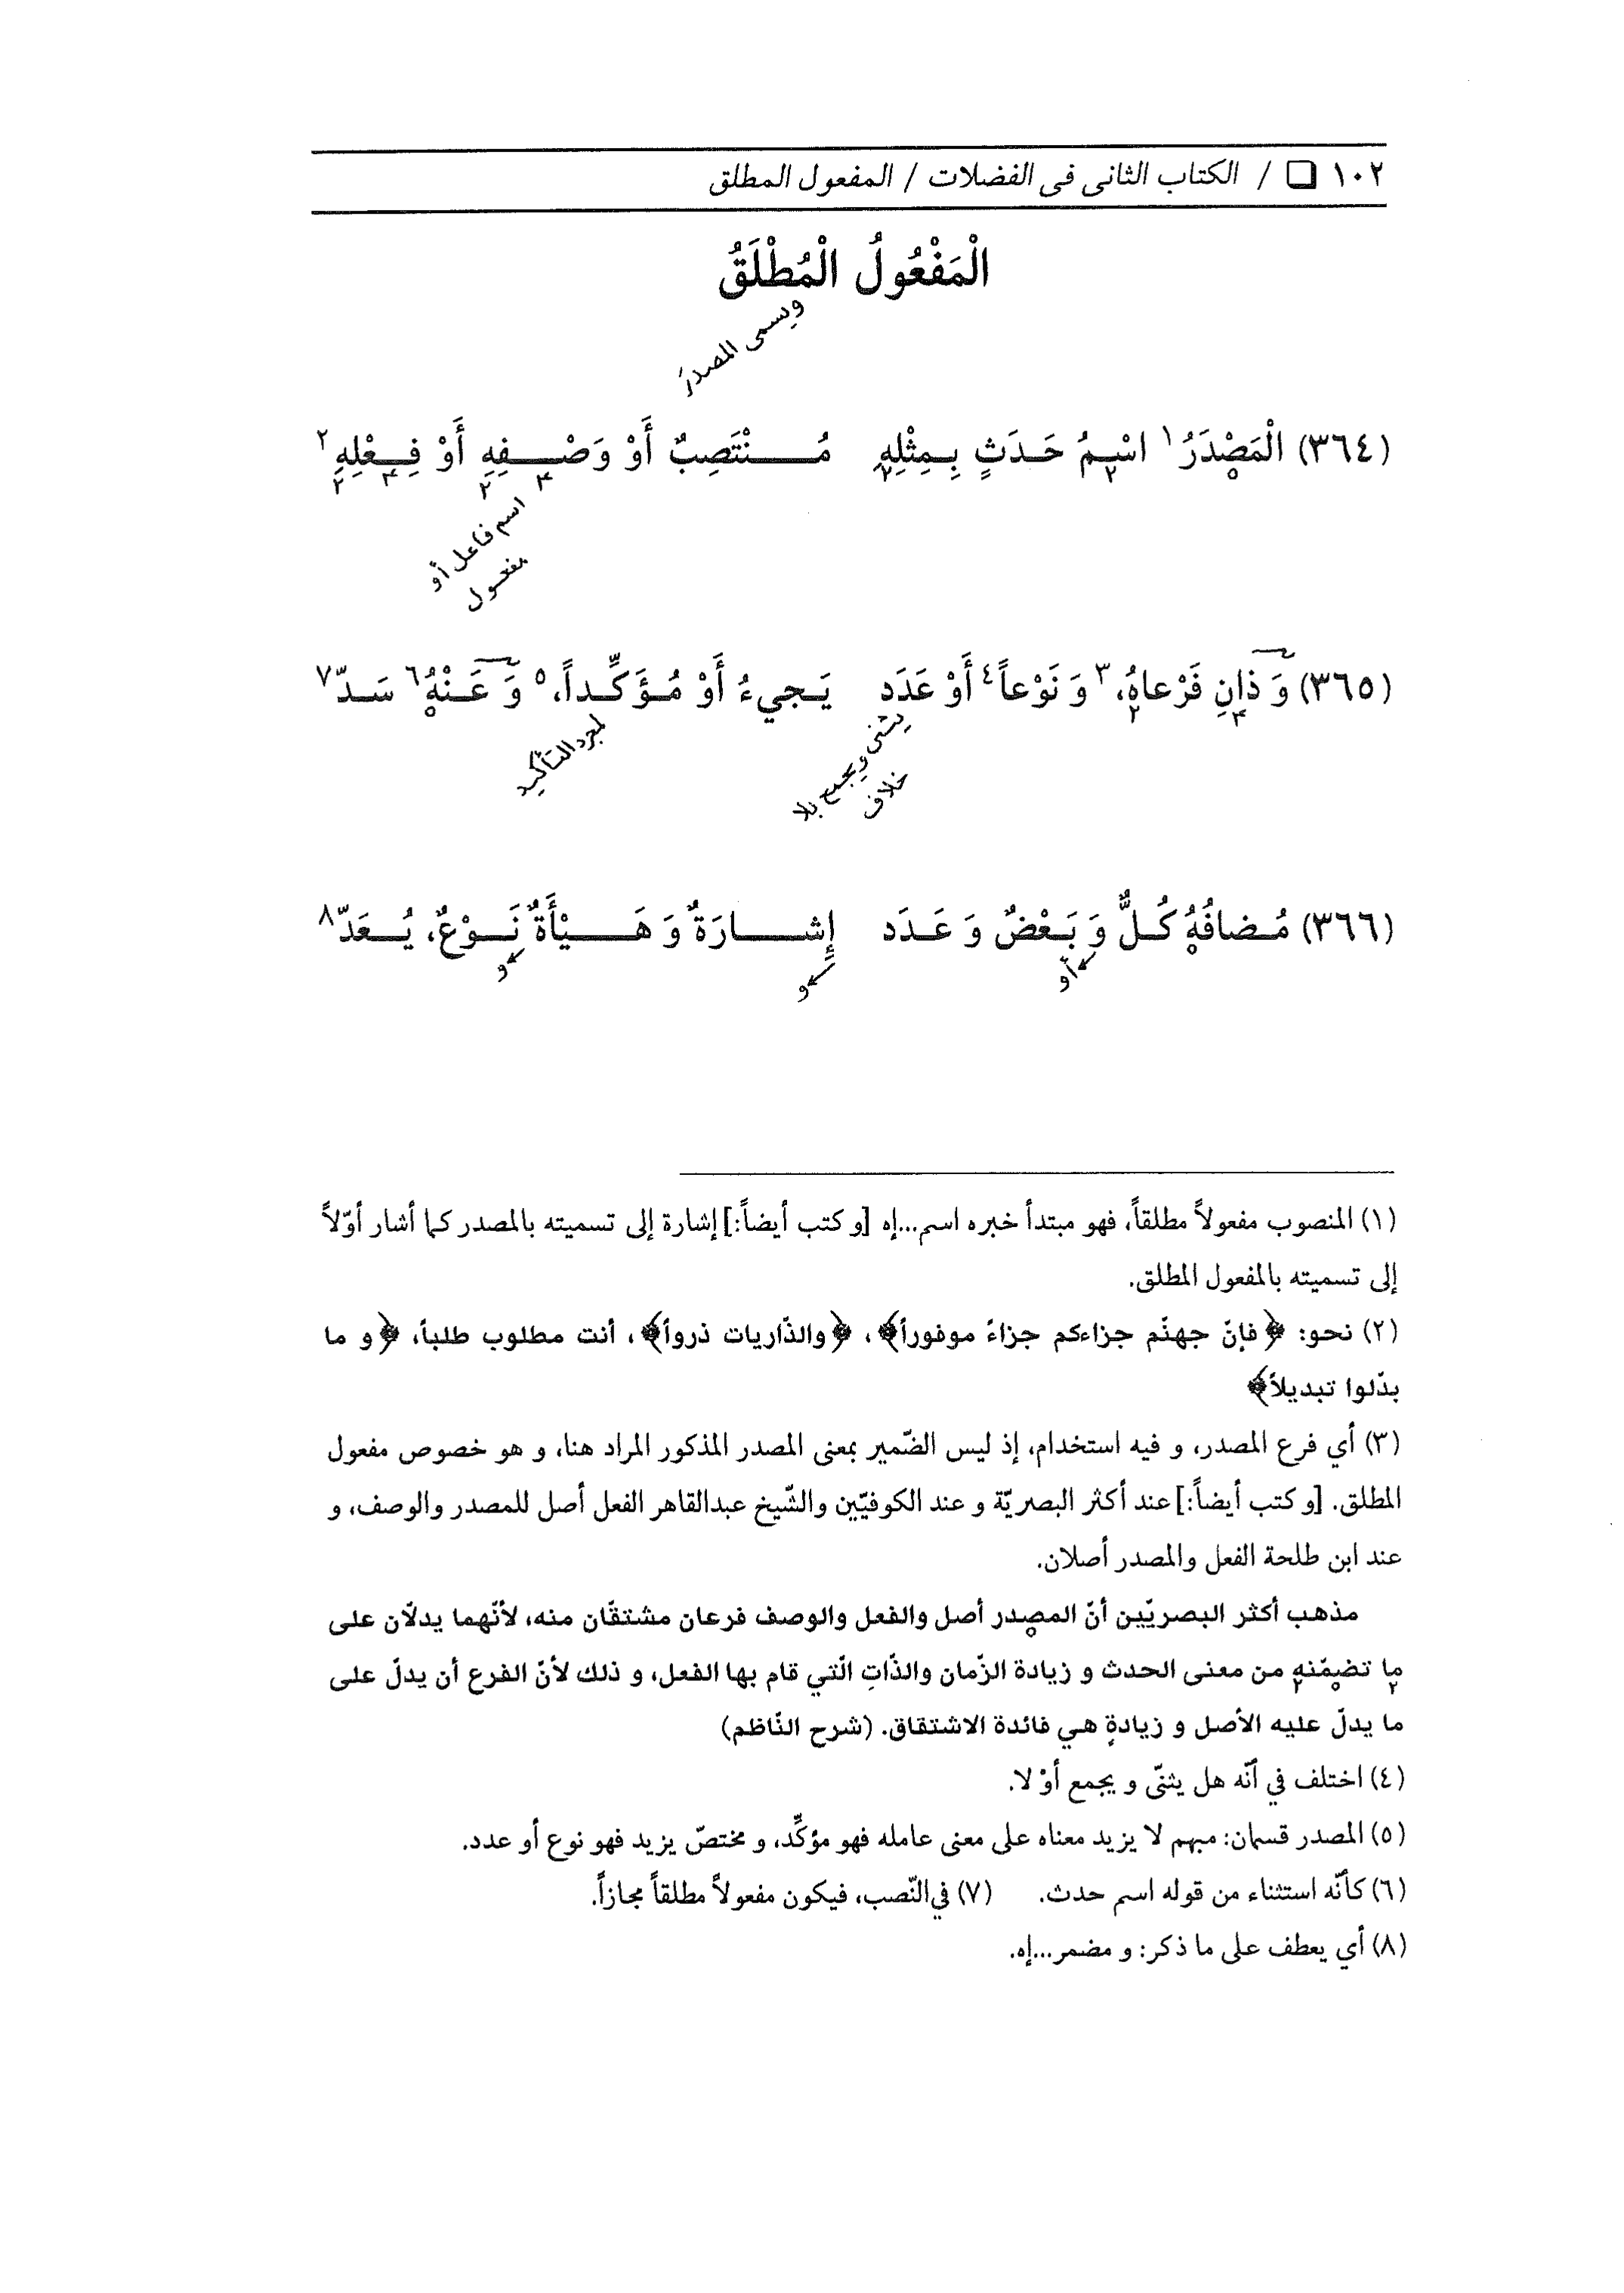 ١٠٢ ❏ / الكتاب الثانى فى الفضلات / المفعول المطلق
الْمَفْعُولُ الْمُطْلَقُ
ويسمى المصدرَ
(٣٦٤) الْمَصْدَرُ١ اسْمُ حَدَثٍ بِمِثْلِهِ مُنْتَصِبٌ أَوْ وَصْفِهِ أَوْ فِعْلِهِ٢
اسم فاعل أو
مفعول
(٣٦٥) وَ ذانِ فَرْعاهُ،٣ وَ نَوْعاً٤ أَوْ عَدَد يَجيءُ أَوْ مُؤَكِّداً،٥ وَ عَنْهُ٦ سَدّ٧
يثنى ويجمع بلا
خلاف
لمجرد التأكيد
(٣٦٦) مُضافُهُ كُلٌّ وَ بَعْضٌ وَ عَدَد إِشارَةٌ وَ هَيْأَةٌ نَوْعٌ، يُعَدّ٨
أو
و
و
(١) المنصوب مفعولاً مطلقاً، فهو مبتدأ خبره اسم...إه [و كتب أيضاً:] إشارة إلى تسميته بالمصدر كما أشار أوّلاً
إلى تسميته بالمفعول المطلق.
(٢) نحو: ﴿فإنّ جهنّم جزاءكم جزاءً موفوراً﴾، ﴿والذّاريات ذرواً﴾، أنت مطلوب طلباً، ﴿و ما
بدّلوا تبديلاً﴾
(٣) أي فرع المصدر، و فيه استخدام، إذ ليس الضّمير بمعنى المصدر المذكور المراد هنا، و هو خصوص مفعول
المطلق. [و كتب أيضاً:] عند أكثر البصريّة و عند الكوفيّين والشّيخ عبدالقاهر الفعل أصل للمصدر والوصف، و
عند ابن طلحة الفعل والمصدر أصلان.
مذهب أكثر البصريّين أنّ المصدر أصل والفعل والوصف فرعان مشتقّان منه، لأنّهما يدلّان على
ما تضمّنه من معنى الحدث و زيادة الزّمان والذّاتِ الّتي قام بها الفعل، و ذلك لأنّ الفرع أن يدلّ على
ما يدلّ عليه الأصل و زيادةٍ هي فائدة الاشتقاق. (شرح النّاظم)
(٤) اختلف في أنّه هل يثنّى و يجمع أوْ لا.
(٥) المصدر قسمان: مبهم لا يزيد معناه على معنى عامله فهو مؤكِّد، و مختصّ يزيد فهو نوع أو عدد.
(٦) كأنّه استثناء من قوله اسم حدث. (٧) في‌النّصب، فيكون مفعولاً مطلقاً مجازاً.
(٨) أي يعطف على ما ذكر: و مضمر...إه.